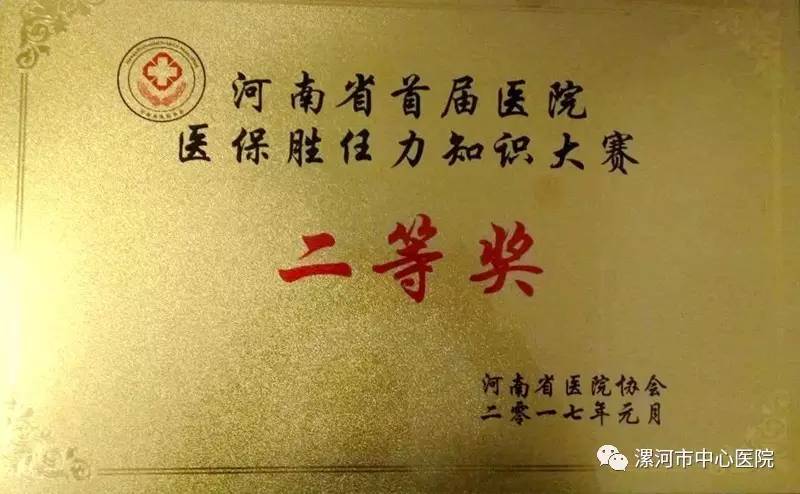 河南省首届医院
医保胜任力知识大赛
二等奖
河南省医院协会
二零一七年元月
漯河市中心医院